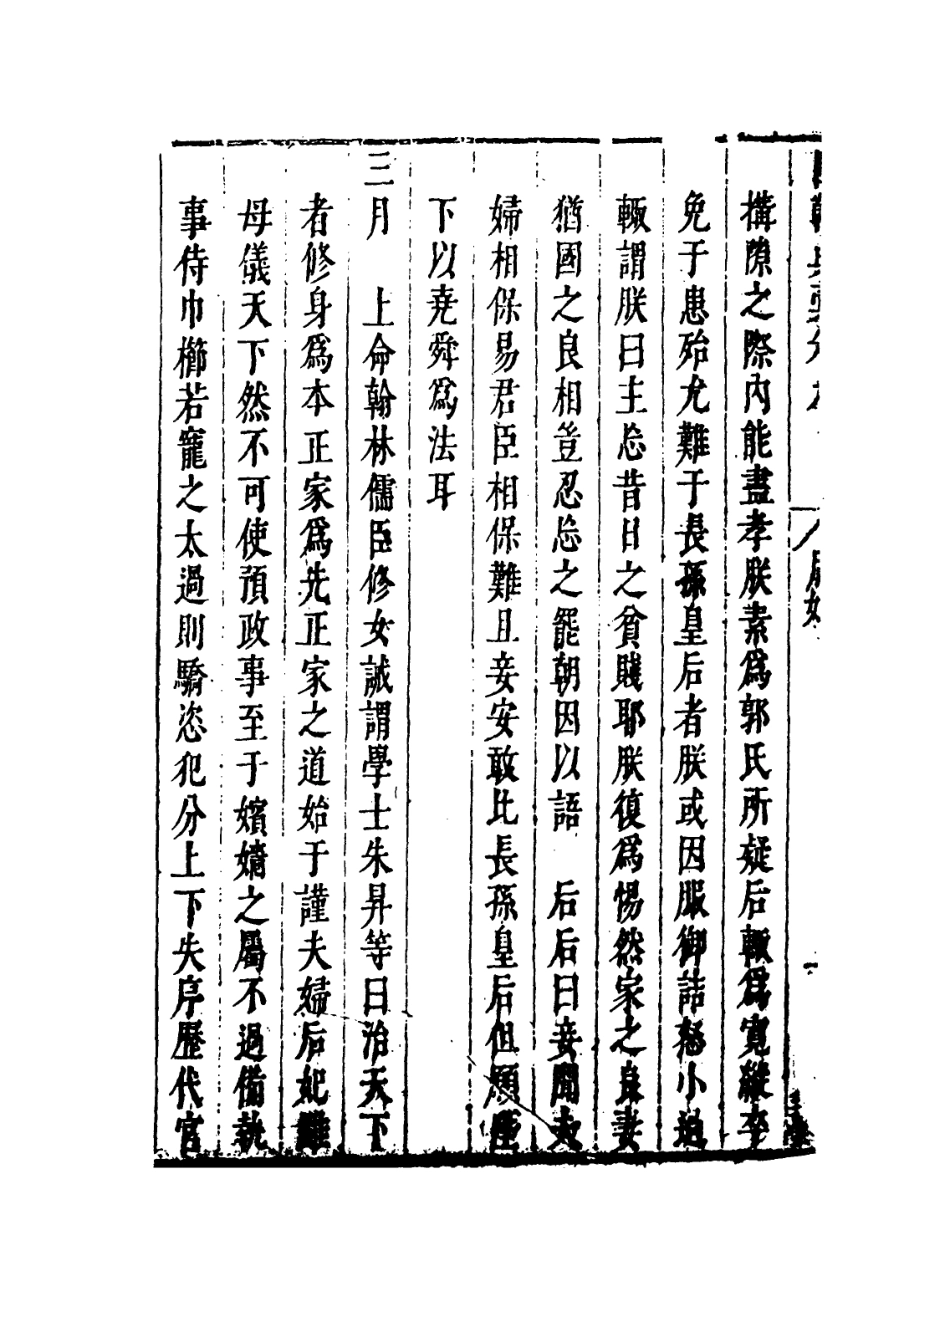 搆隙之際內能盡孝朕素爲郭氏所疑后輙爲寬縱卒
免于患殆尤難于長孫皇后者朕或因服御詰怒小過
輙謂朕曰主忘昔日之貧賤耶朕復爲惕然家之良妻
猶國之良相豈忍忘之罷朝因以語　后后曰妾聞夫
婦相保易君臣相保難且妾安敢比長孫皇后但願陛
下以堯舜爲法耳
三月　上命翰林儒臣修女誡謂學士朱昇等曰治天下
者修身爲本正家爲先正家之道始于謹夫婦后妃雖
母儀天下然不可使預政事至于嬪嬙之屬不過備執
事侍巾櫛若寵之太過則驕恣犯分上下失序歷代宮